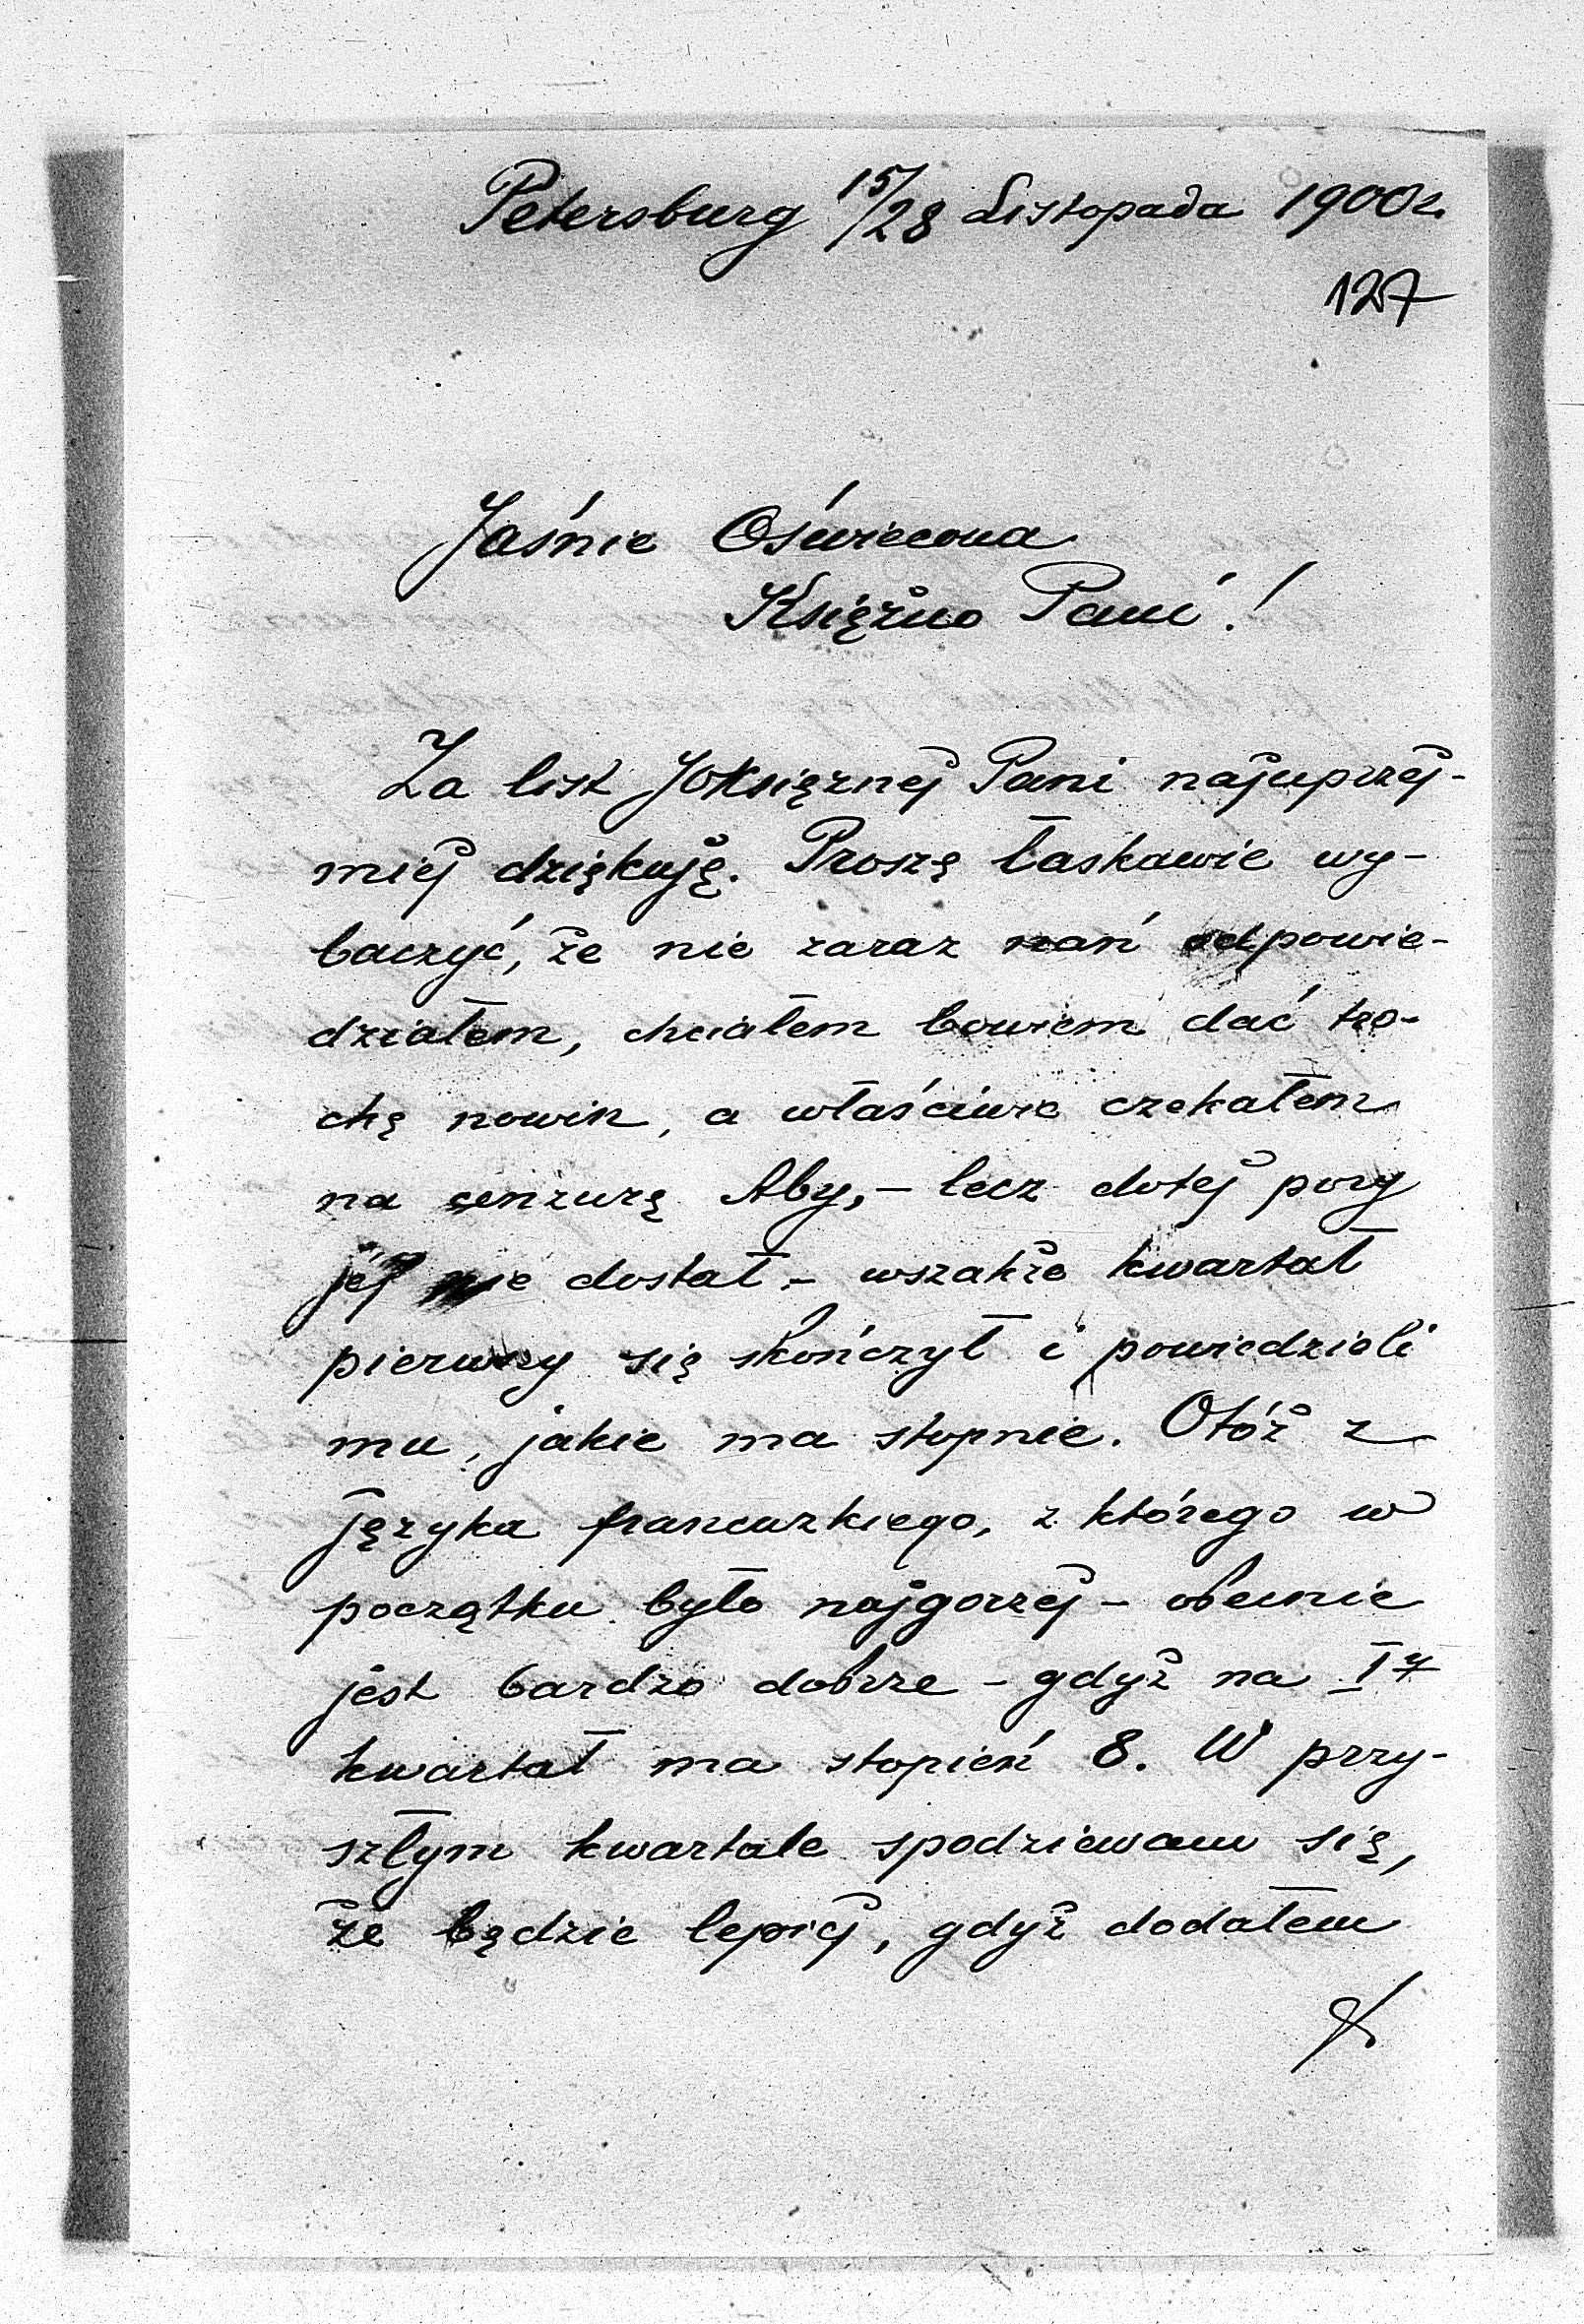 Petersburg 15/28 Listopada 1900 r.
127
Jaśnie Oświecona
Księżno Pani!
Za list JOKsiężnej Pani najuprzej-
miej dziękuję. Proszę łaskawie wy-
baczyć, że nie zaraz nań odpowie-
działem, chciałem bowiem dać tro-
chę nowin, a właściwie czekałem
na cenzurę Aby, – lecz dotej pory
jej nie dostał – wszakże kwartał
pierwszy się skończył i powiedzieli
mu, jakie ma stopnie. Otóż z
języka francuzkiego, z którego w
początku było najgorzej – obecnie
jest bardzo dobrze – gdyż na I-y
kwartał ma stopień 8. W przy-
szłym kwartale spodziewam się,
że będzie lepiej, gdyż dodałem